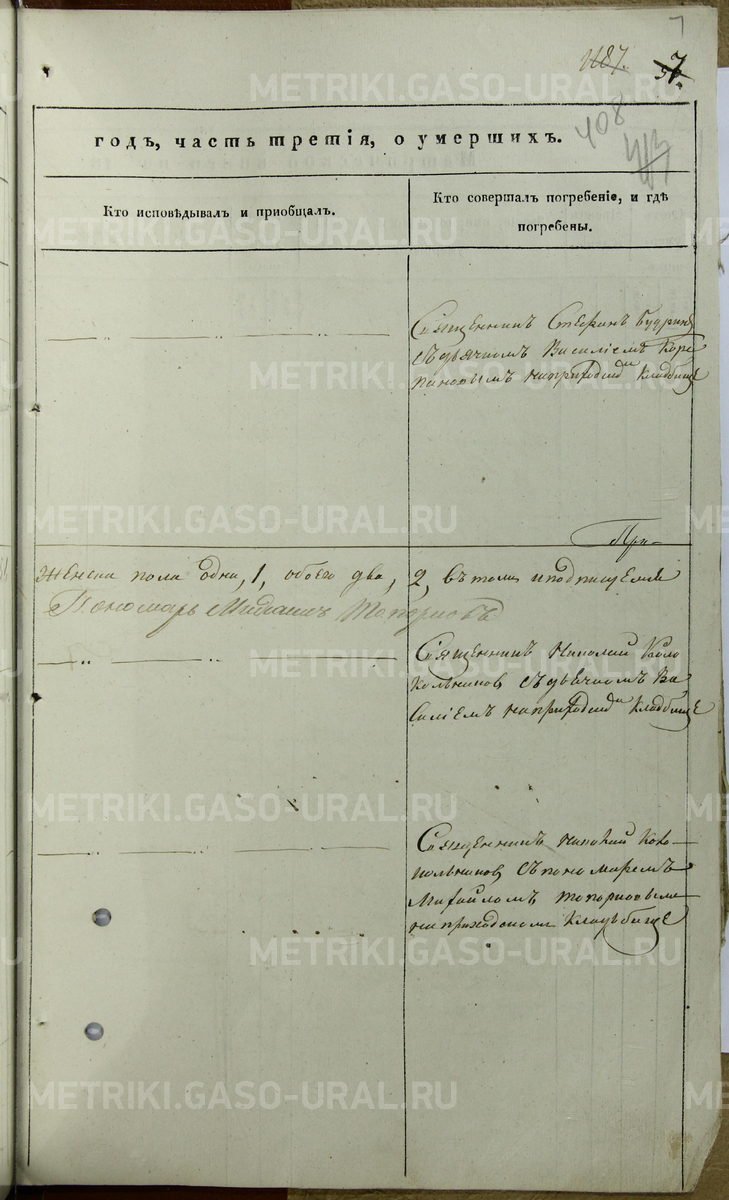 7
1187.
7
408
годъ, часть третія, о умершихъ.
Кто исповѣдывалъ и пріобщалъ.
Кто совершалъ погребеніе, и гдѣ
погребены.
Священникъ Стефанъ Будринъ
съ дьячкомъ Василіемъ Коре
пановымъ на приходском кладбище
При-
женска пола одна, 1, обоего два, 2, въ томъ и подписуемся
Пономарь Михаилъ Топорковъ
Священникъ Николай Коло
кольников съ дьячкомъ Ва
силіемъ на приходском кладбище
Священникъ Николай Коло-
кольников съ пономаремъ
Михайломъ Топорковымъ
на приходском кладбище
METRIKI.GASO-URAL.RU